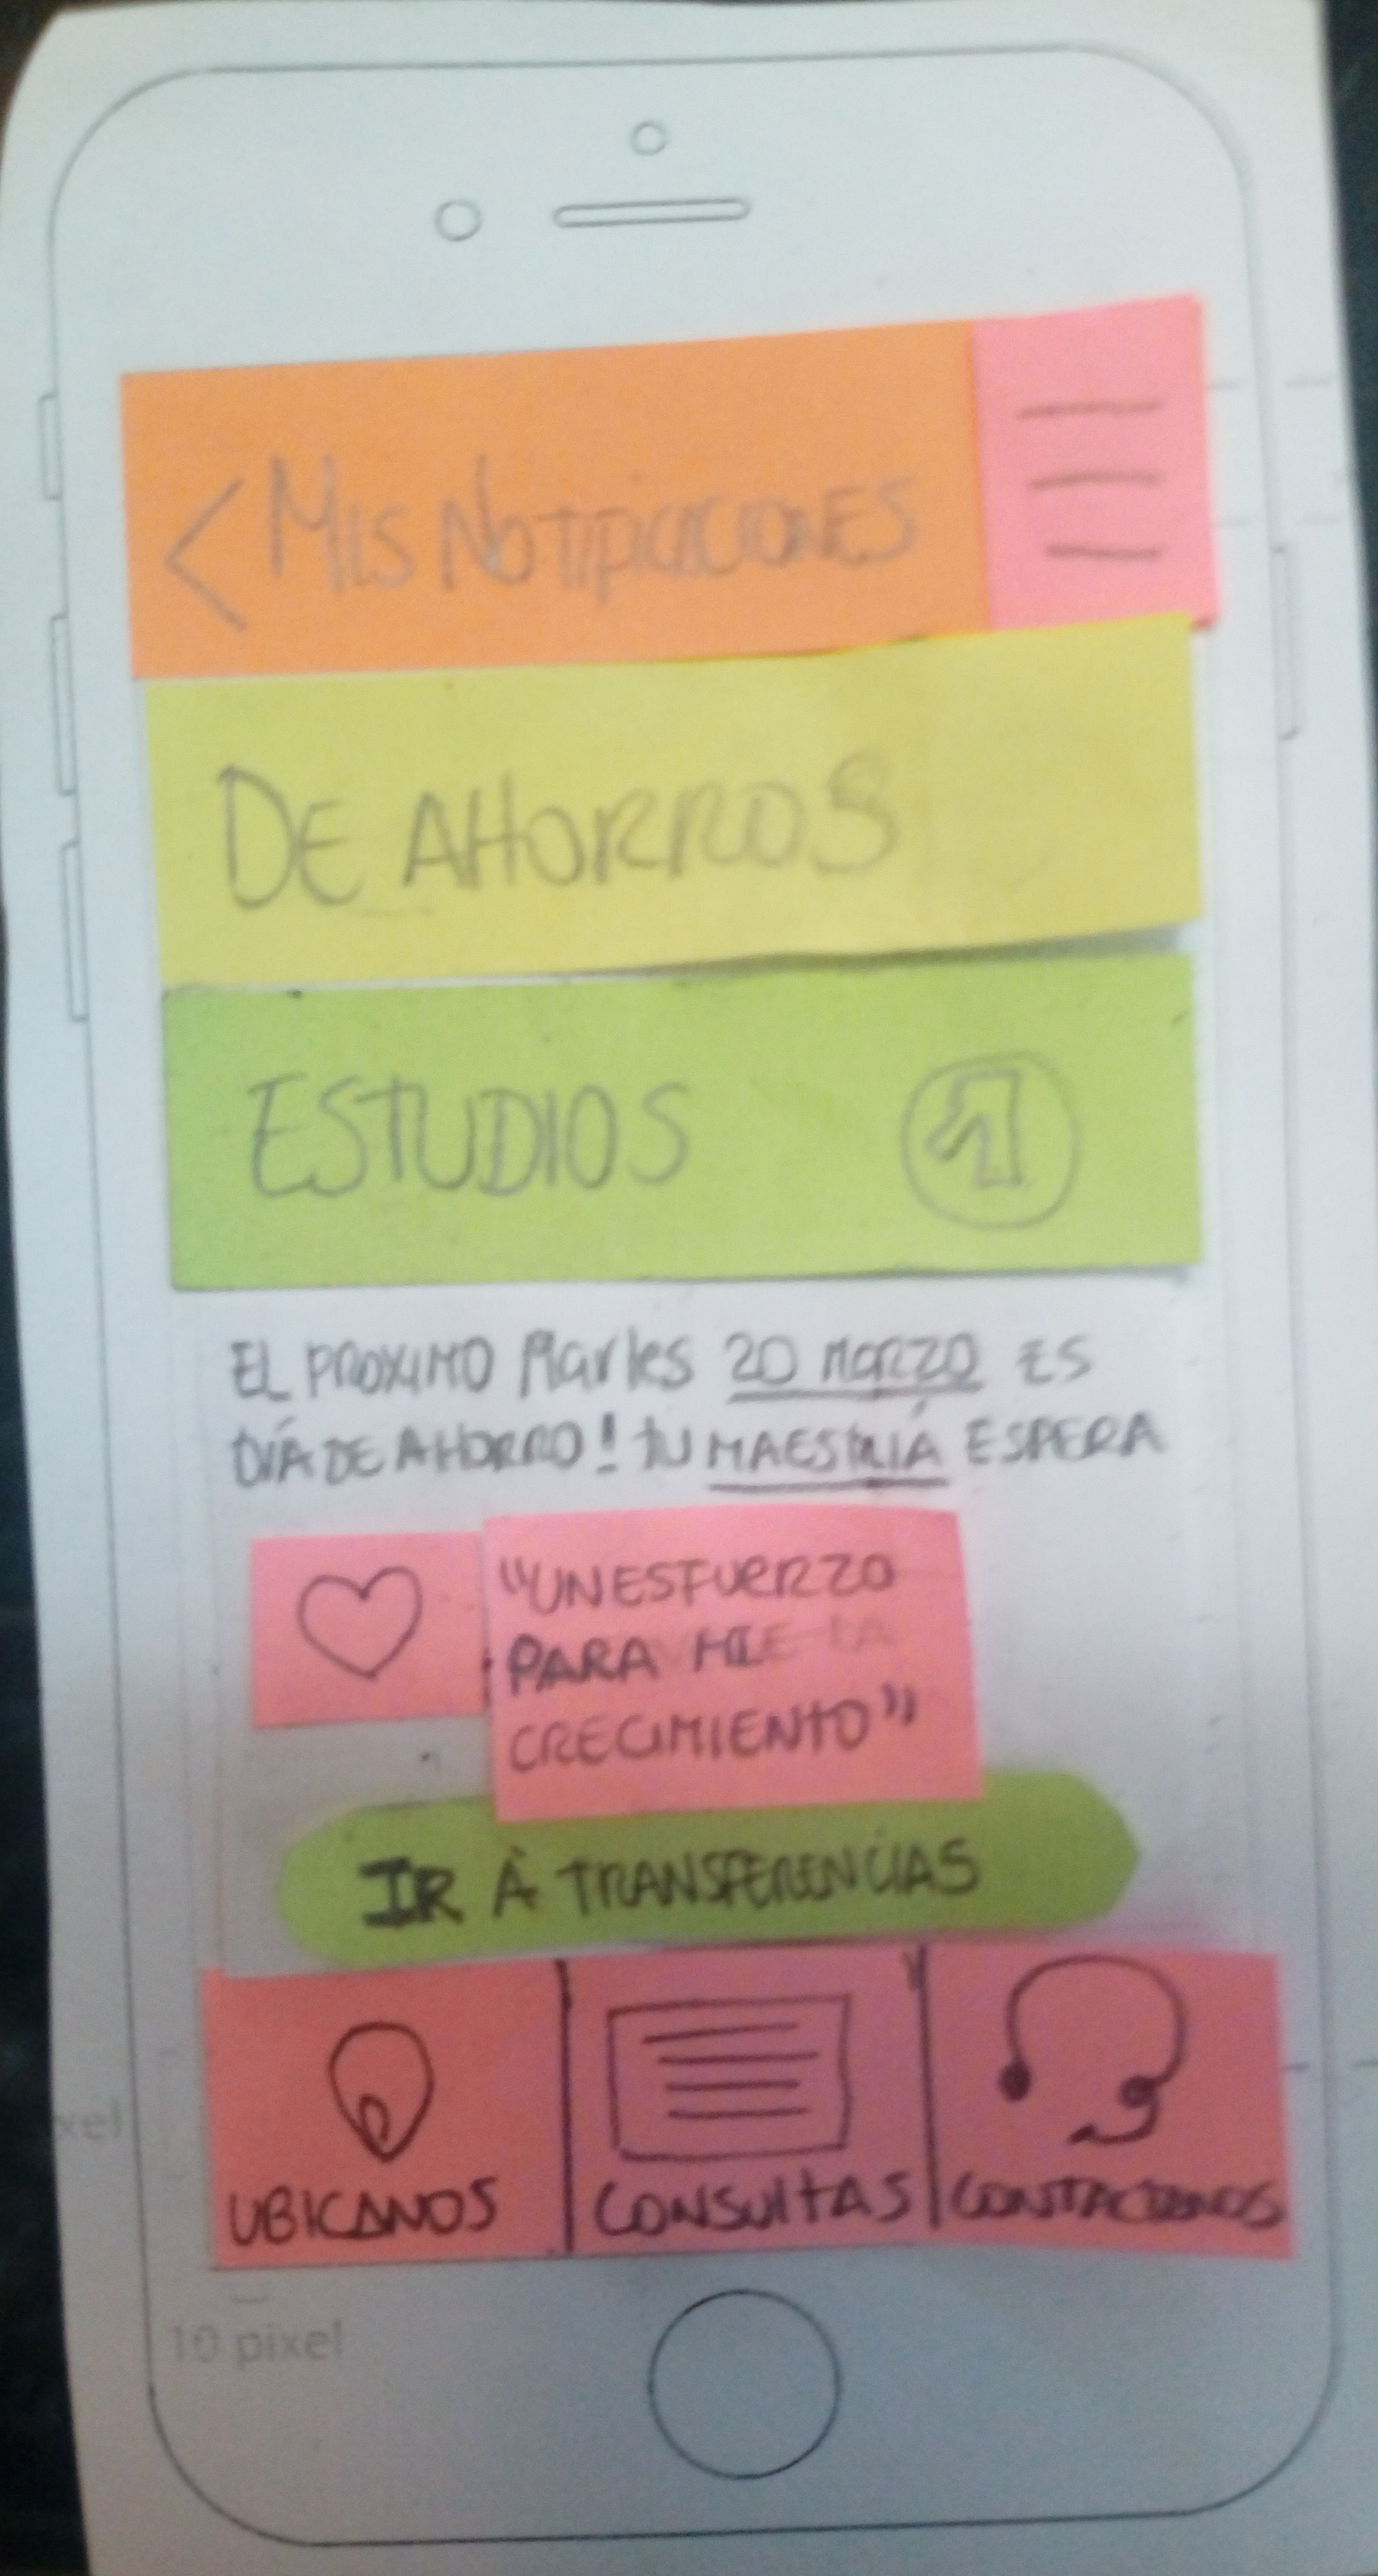 < MIS NOTIFICACIONES
DE AHORROS
ESTUDIOS 1
EL PROXIMO Martes 20 MARZO ES
DÍA DE AHORRO! TU MAESTRÍA ESPERA
"UN ESFUERZO
PARA MI
CRECIMIENTO"
IR A TRANSFERENCIAS
UBICANOS CONSULTAS CONTACTANOS
10 pixel